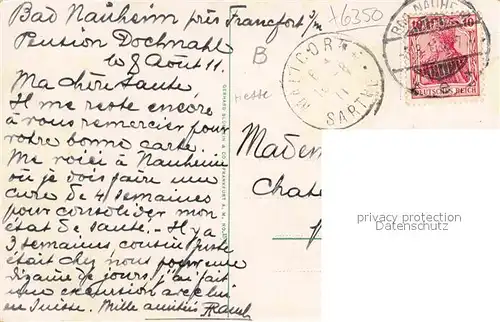 Bad Nauheim près Francfort s/m
Pension Dochnahl
le 8 Août 11.
Ma chère tante,
Il me reste encore
à vous remercier pour
votre bonne carte.
Me voici à Nauheim
où je dois faire une
cure de 4 semaines
pour consolider mon
état de santé. - Il y a
3 semaines, cousin Juste
était chez nous pour une
dizaine de jours. j'ai fait
une excursion avec lui
en Suisse. Mille amitiés
+6350
B
Hesse
MALICORNE
SARTHE
BAD-NAUHEIM
10 10
DEUTSCHES REICH
Madem
Chate
privacy protection
Datenschutz